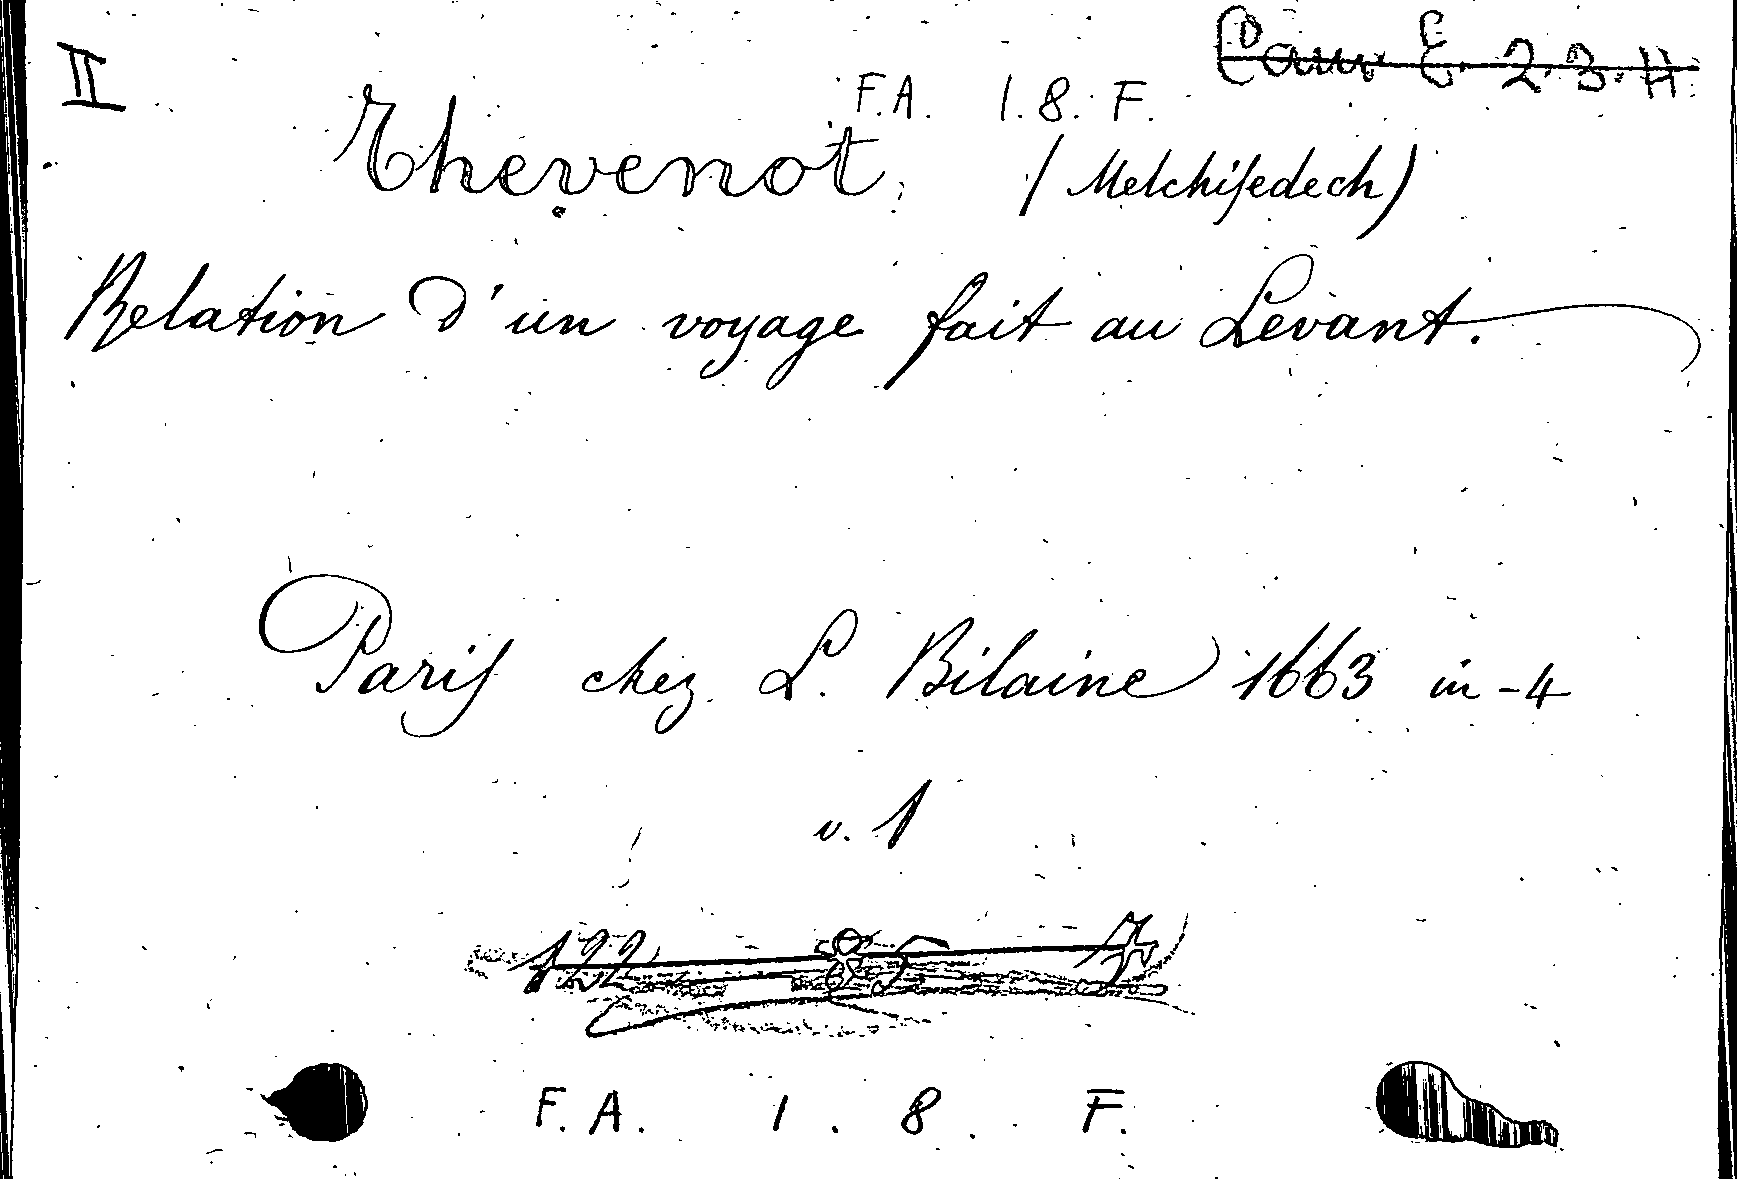 II
Cam E. 2. 3. H.
F.A. 1. 8. F.
Thevenot (Melchisedech)
Relation d'un voyage fait au Levant.
Paris chez L. Bilaine 1663 in-4
v. 1
122
F. A. 1. 8. F.